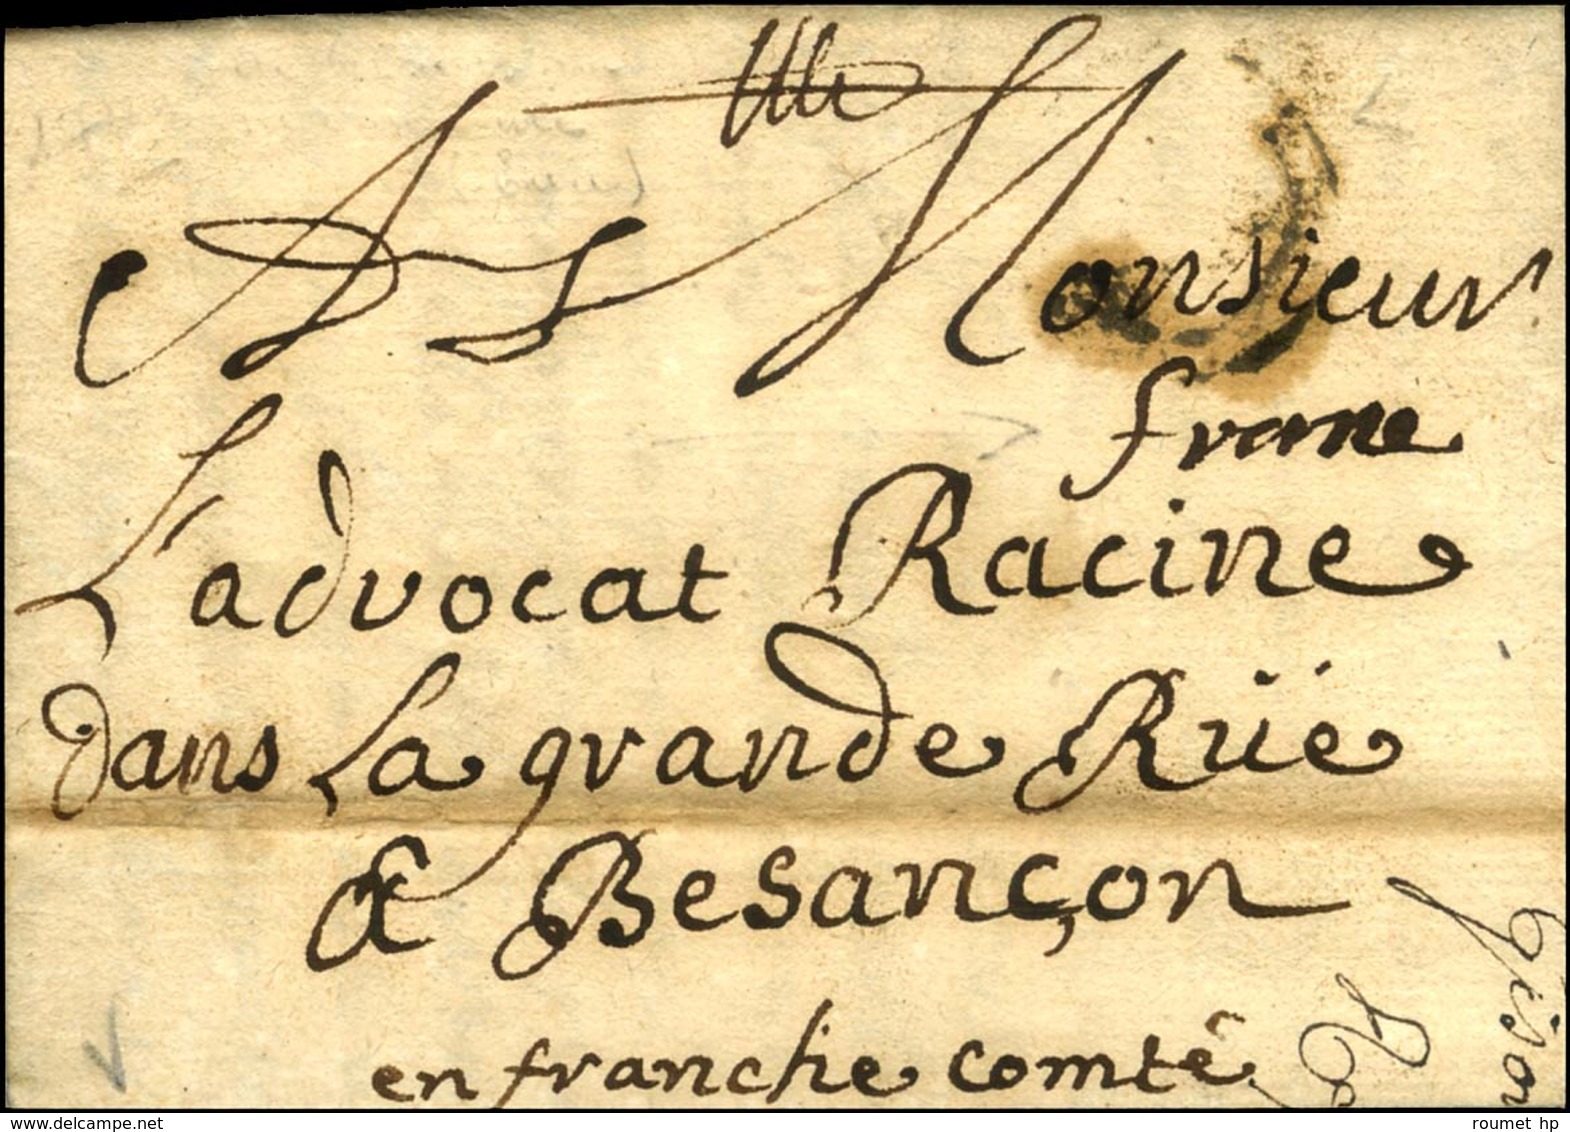 A Monsieur
franc
L'advocat Racine
dans La grande Rüe
A Besançon
en franche comté
roumet hp